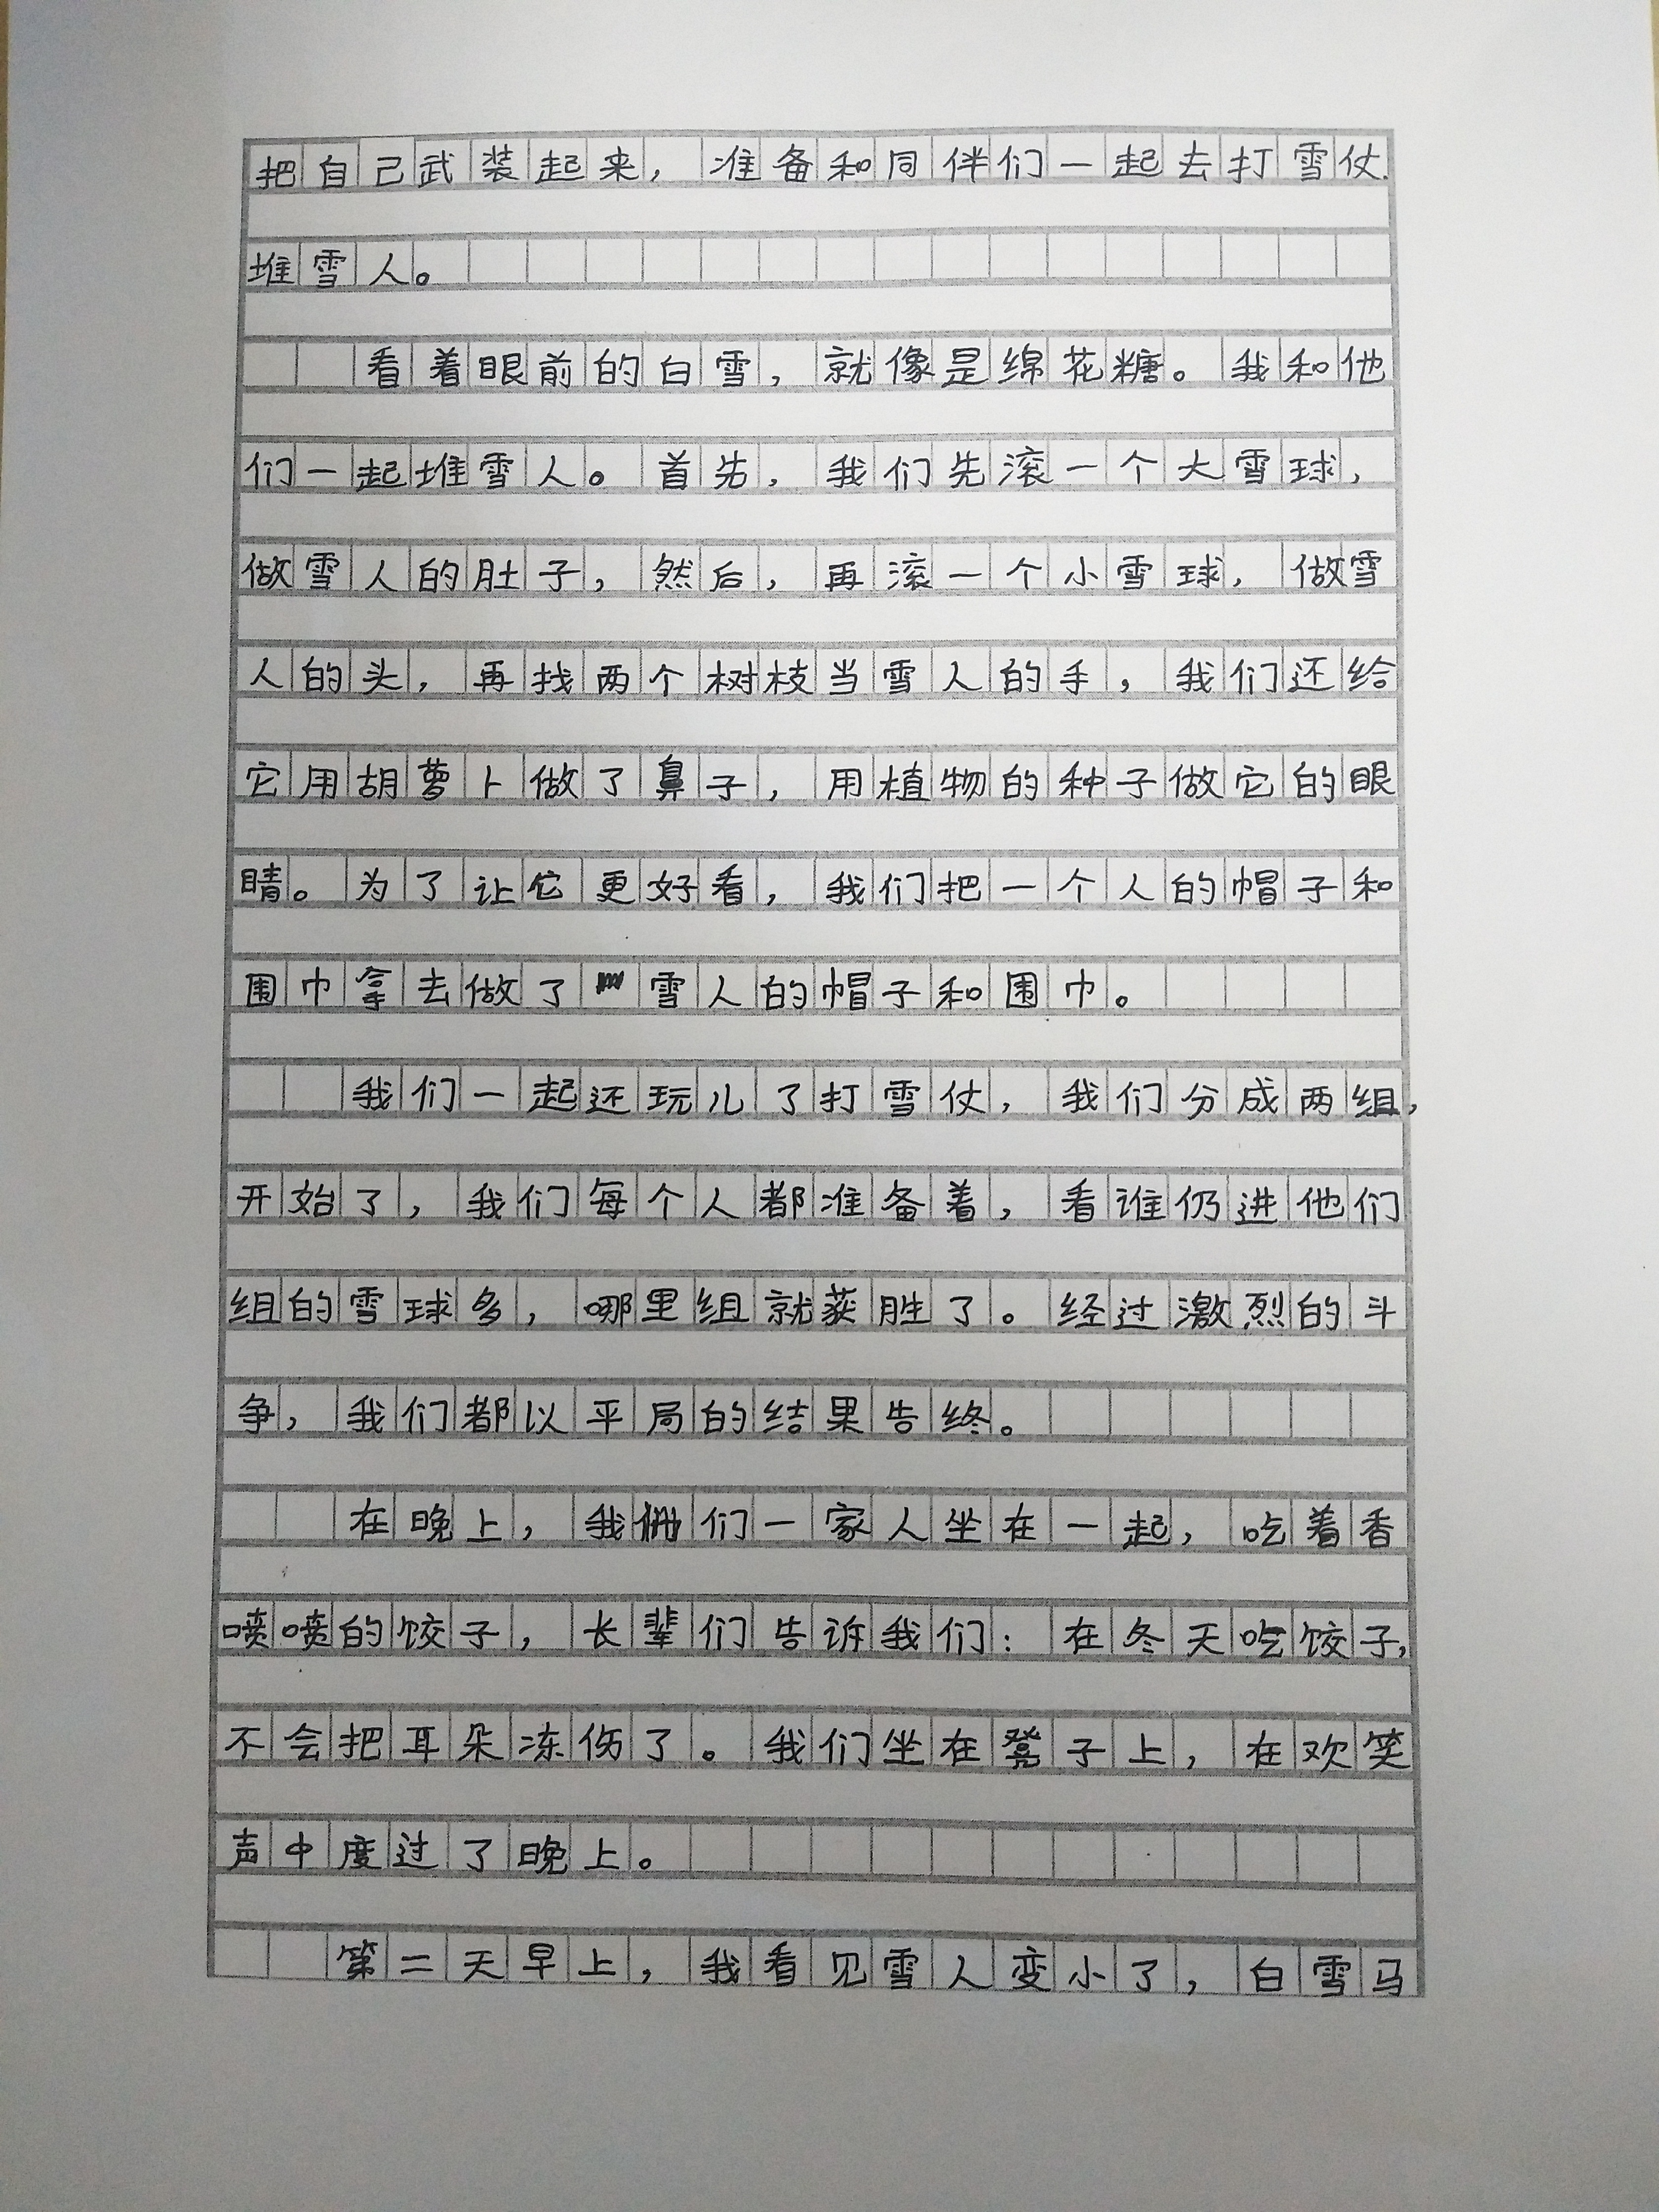 把自己武装起来，准备和同伴们一起去打雪仗.
堆雪人。
看着眼前的白雪，就像是绵花糖。我和他
们一起堆雪人。首先，我们先滚一个大雪球，
做雪人的肚子，然后，再滚一个小雪球，做雪
人的头，再找两个树枝当雪人的手，我们还给
它用胡萝卜做了鼻子，用植物的种子做它的眼
睛。为了让它更好看，我们把一个人的帽子和
围巾拿去做了雪人的帽子和围巾。
我们一起还玩儿了打雪仗，我们分成两组，
开始了，我们每个人都准备着，看谁仍进他们
组的雪球多，哪里组就获胜了。经过激烈的斗
争，我们都以平局的结果告终。
在晚上，我们一家人坐在一起，吃着香
喷喷的饺子，长辈们告诉我们：在冬天吃饺子，
不会把耳朵冻伤了。我们坐在凳子上，在欢笑
声中度过了晚上。
第二天早上，我看见雪人变小了，白雪马